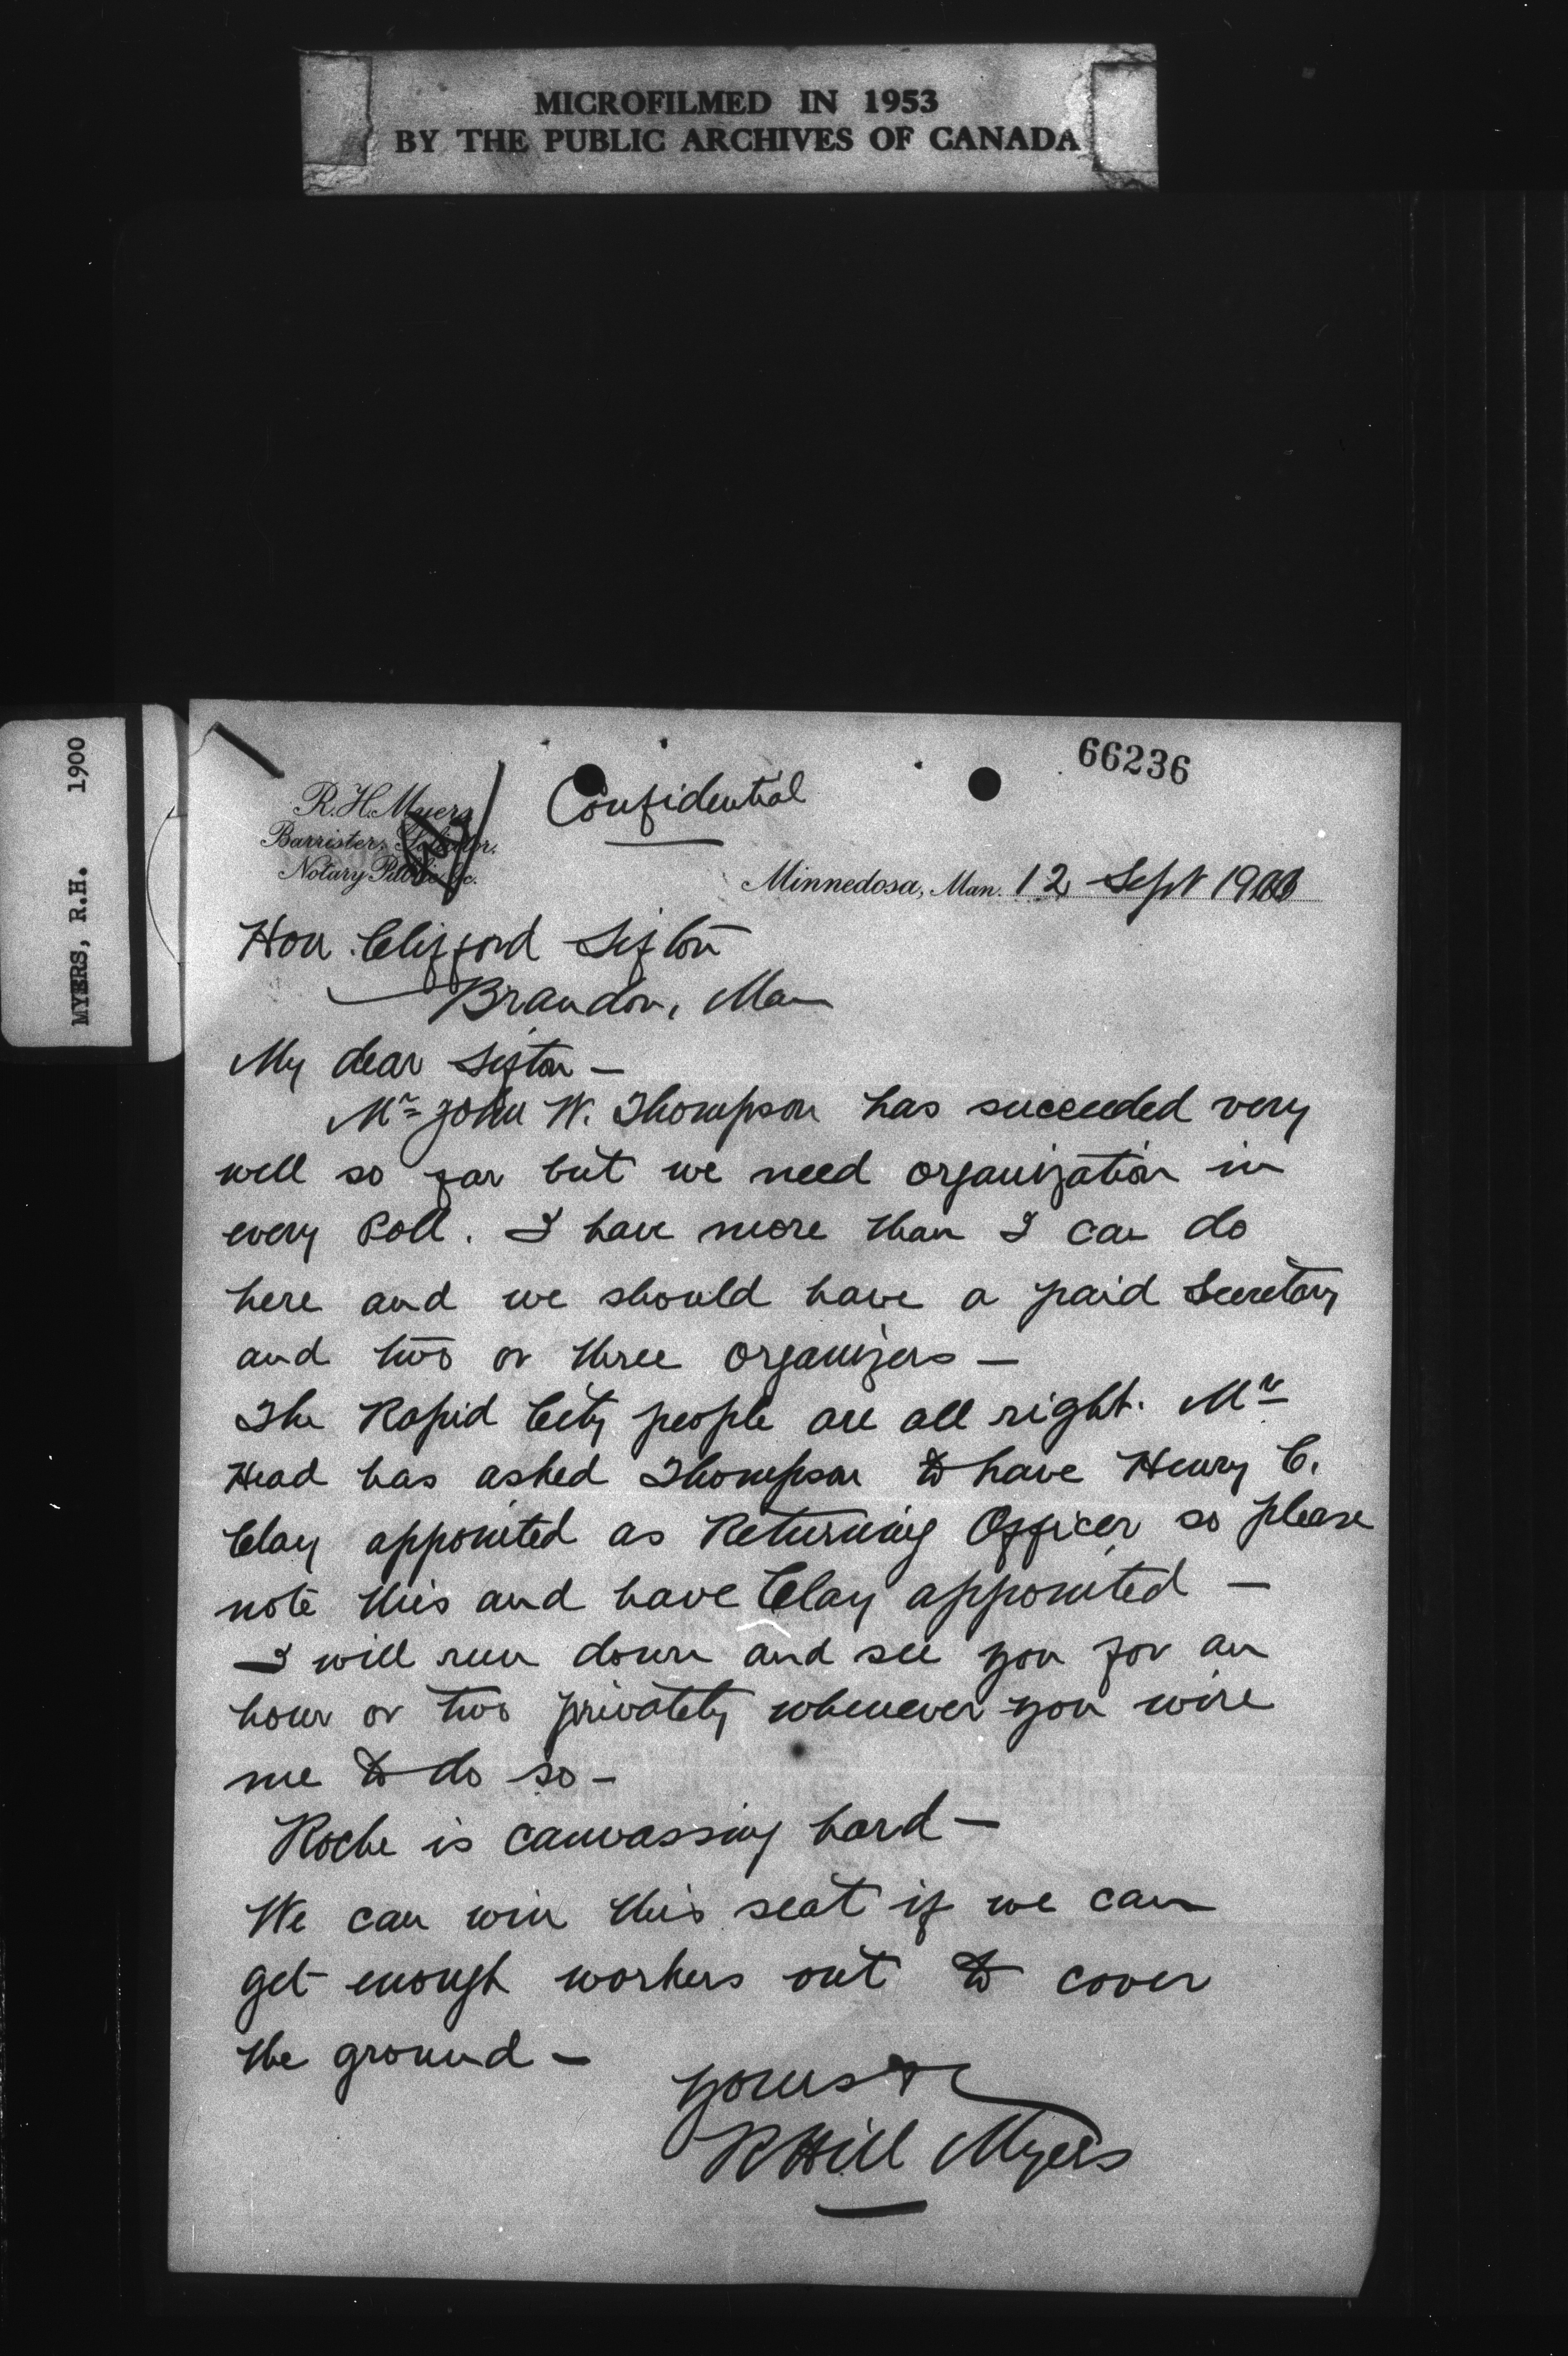 MICROFILMED IN 1953
BY THE PUBLIC ARCHIVES OF CANADA
MYERS, R.H. 1900
66236
Confidential
R.H. Myers
Barrister, Solicitor.
Notary Public &c.
Minnedosa, Man. 12 Sept 1900
Hon. Clifford Sifton
Brandon, Man
My dear Sifton —
Mr John W. Thompson has succeeded very
well so far but we need organization in
every Poll. I have more than I can do
here and we should have a paid Secretary
and two or three organizers —
The Rapid City people are all right. Mr
Head has asked Thompson to have Henry C.
Clay appointed as Returning Officer so please
note this and have Clay appointed —
I will run down and see you for an
hour or two privately whenever you wire
me to do so —
Roche is canvassing hard —
We can win this seat if we can
get enough workers out to cover
the ground —
Yours &c
R Hill Myers